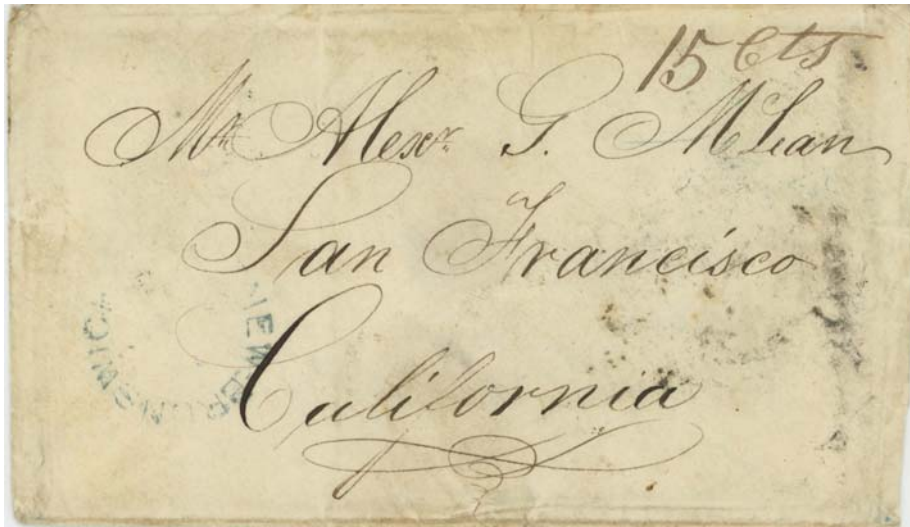 15 Cts
Mr. Alexr. G. McLean
San Francisco
California
NEW BRUNSWICK